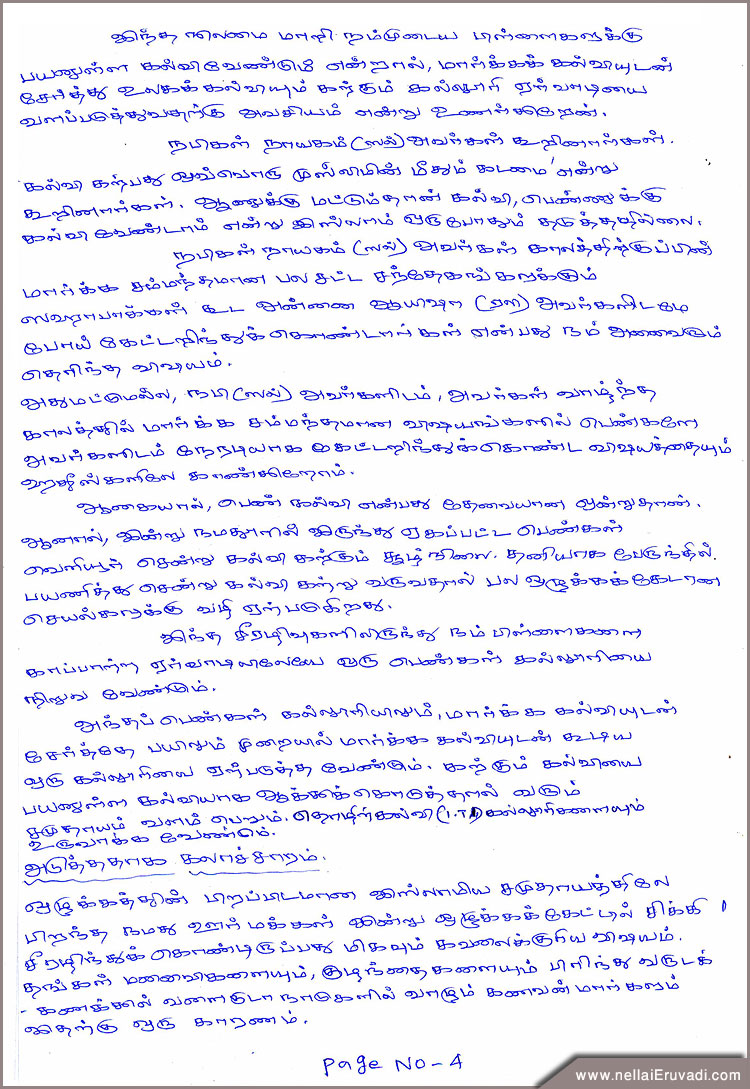 இந்த நிலைமை மாறி நம்முடைய பிள்ளைகளுக்கு
பயனுள்ள கல்வி வேண்டும் என்றால், மார்க்கக் கல்வியுடன்
சேர்த்து உலகக்கல்வியும் கற்கும் கல்லூரி ஏர்வாடியை
வளப்படுத்துவதற்கு அவசியம் என்று உணர்கிறேன்.
நபிகள் நாயகம் (ஸல்) அவர்கள் கூறினார்கள்.
கல்வி கற்பது ஒவ்வொரு முஸ்லிமின் மீதும் கடமை' என்று
கூறினார்கள். ஆணுக்கு மட்டும்தான் கல்வி, பெண்ணுக்கு
கல்வி வேண்டாம் என்று இஸ்லாம் ஒருபோதும் தடுத்ததில்லை.
நபிகள் நாயகம் (ஸல்) அவர்கள் காலத்திற்குப்பின்
மார்க்க சம்மந்தமான பல சட்ட சந்தேகங்களுக்கும்
ஸஹாபாக்கள் கூட அன்னை ஆயிஷா (ரலி) அவர்களிடமே
போய் கேட்டறிந்துக் கொண்டார்கள் என்பது நம் அனைவரும்
தெரிந்த விஷயம்.
அதுமட்டுமல்ல, நபி (ஸல்) அவர்களிடம், அவர்கள் வாழ்ந்த
காலத்தில் மார்க்க சம்மந்தமான விஷயங்களில் பெண்களே
அவர்களிடம் நேரடியாக கேட்டறிந்துக்கொண்ட விஷயத்தையும்
ஹதீஸ்களிலே காண்கிறோம்.
ஆகையால், பெண் கல்வி என்பது தேவையான ஒன்றுதான்.
ஆனால், இன்று நமதூரில் இருந்து ஏகப்பட்ட பெண்கள்
வெளியூர் சென்று கல்வி கற்கும் சூழ்நிலை. தனியாக பேருந்தில்
பயணித்து சென்று கல்வி கற்று வருவதால் பல ஒழுக்கக்கேடான
செயல்களுக்கு வழி ஏற்படுகிறது.
இந்த சீரழிவுகளிலிருந்து நம் பிள்ளைகளை
காப்பாற்ற ஏர்வாடியிலேயே ஒரு பெண்கள் கல்லூரியை
நிறுவ வேண்டும்.
அந்தப் பெண்கள் கல்லூரியிலும், மார்க்க கல்வியுடன்
சேர்த்தே பயிலும் முறையில் மார்க்க கல்வியுடன் கூடிய
ஒரு கல்லூரியை ஏற்படுத்த வேண்டும். கற்கும் கல்வியை
பயனுள்ள கல்வியாக ஆக்கிக் கொடுத்தால் வரும்
சமுதாயம் வளம் பெறும். தொழிற்கல்வி (I.T.I) கல்லூரிகளையும்
உருவாக்க வேண்டும்.
அடுத்ததாக கலாச்சாரம்.
ஒழுக்கத்தின் பிறப்பிடமான இஸ்லாமிய சமுதாயத்திலே
பிறந்த நமது ஊர் மக்கள் இன்று ஒழுக்கக்கேட்டில் சிக்கி
சீரழிந்துக் கொண்டிருப்பது மிகவும் கவலைக்குரிய விஷயம்.
தங்கள் மனைவிகளையும், குழந்தைகளையும் பிரிந்து வருடக்
- கணக்கில் வளைகுடா நாடுகளில் வாழும் கணவன்மார்களும்
இதற்கு ஒரு காரணம்.
Page NO - 4
www.nellaiEruvadi.com